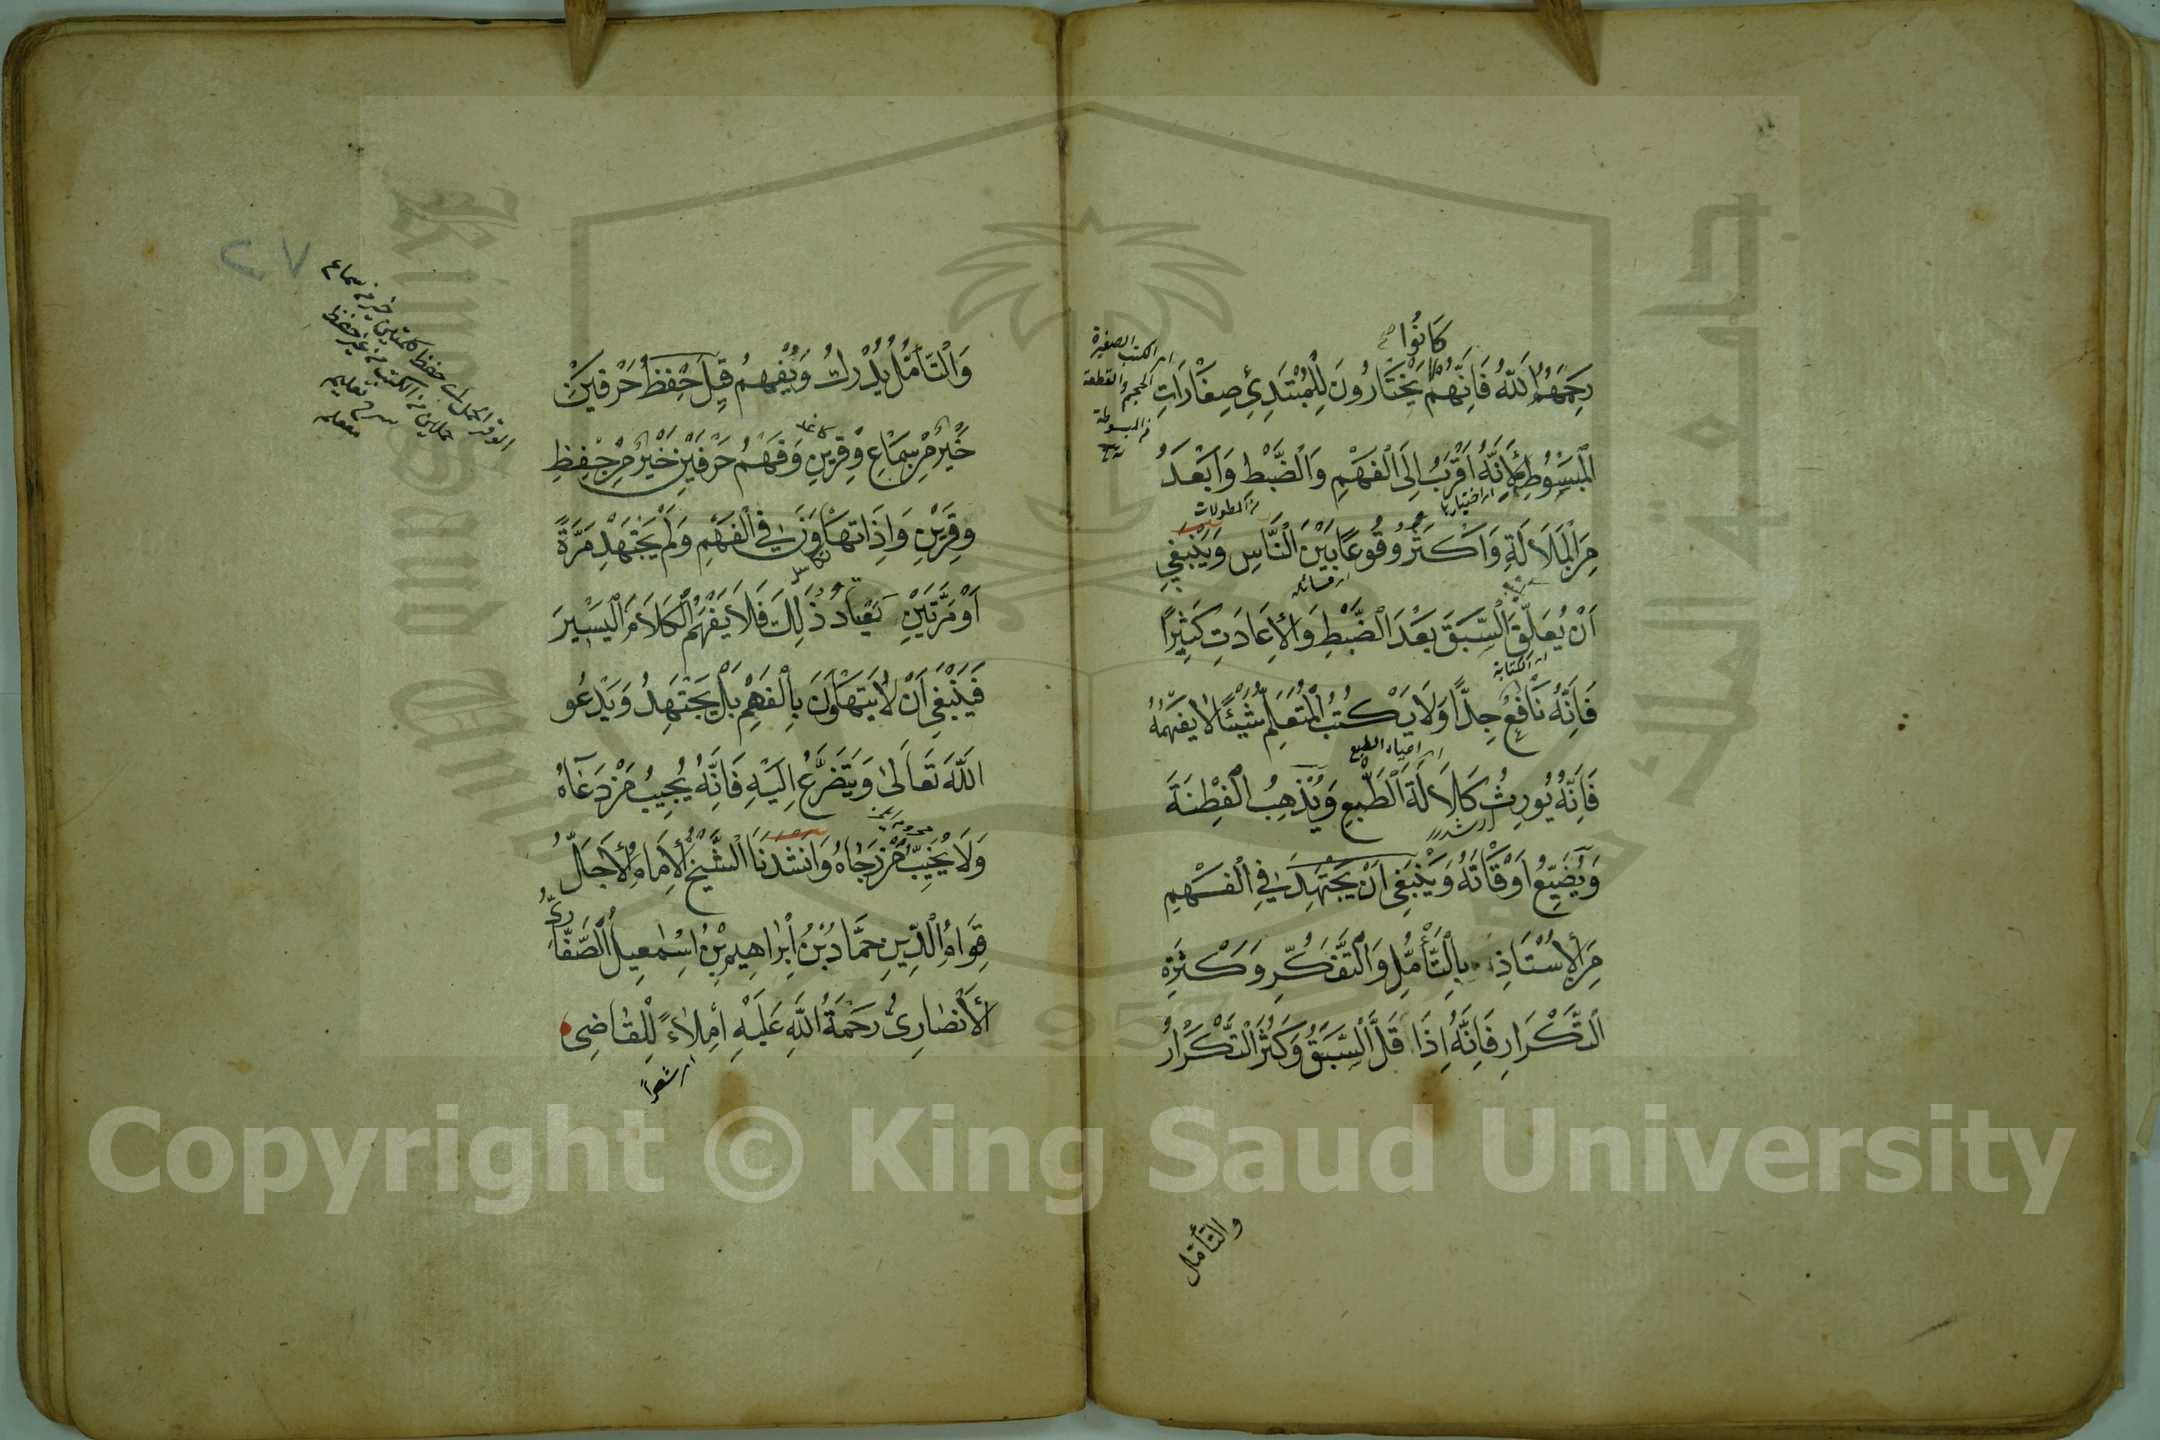 كَانُوا صح
رَحِمَهُمُ اللّٰهُ فَاِنَّهُمْ يَخْتَارُونَ لِلْمُبْتَدِئِ صِغَارَاتِ
اى الكتب الصغيرة
الحجم والقطعة
من المبسوطة
الْمَبْسُوطِ لِاَنَّهُ اَقْرَبُ اِلَى الْفَهْمِ وَالضَّبْطِ وَاَبْعَدُ
من المطولات
مِنَ الْمَلَالَةِ وَاَكْثَرُ وُقُوعًا بَيْنَ النَّاسِ وَيَنْبَغِي
اَنْ يُعَلِّقَ السَّبَقَ بَعْدَ الضَّبْطِ وَالْاِعَادَتِ كَثِيرًا
اى الكتابة
فَاِنَّهُ نَافِعٌ جِدًّا وَلَا يَكْتُبُ الْمُتَعَلِّمُ شَيْئًا لَا يَفْهَمُهُ
اى اعياء الطبع
فَاِنَّهُ يُورِثُ كَلَالَةَ الطَّبْعِ وَيُذْهِبُ الْفِطْنَةَ
وَيُضَيِّعُ اَوْقَاتَهُ وَيَنْبَغِى اَنْ يَجْتَهِدَ فِي الْفَهْمِ
مِنَ الْاُسْتَاذِ بِالتَّأَمُّلِ وَالتَّفَكُّرِ وَكَثْرَةِ
التَّكْرَارِ فَاِنَّهُ اِذَا قَلَّ السَّبَقُ وَكَثُرَ التَّكْرَارُ
والتأمل
٢٧
وَالتَّأَمُّلُ يُدْرِكُ وَيُفْهِمُ قِيلَ حِفْظُ حَرْفَيْنِ
خَيْرٌ مِنْ سِمَاعِ وِقْرَيْنِ وَفَهْمُ حَرْفَيْنِ خَيْرٌ مِنْ حِفْظِ
وِقْرَيْنِ وَاِذَا تَهَاوَنَ فِي الْفَهْمِ وَلَمْ يَجْتَهِدْ مَرَّةً
اَوْ مَرَّتَيْنِ يَعْتَادُ ذٰلِكَ فَلَا يَفْهَمُ الْكَلَامَ الْيَسِيرَ
فَيَنْبَغِى اَنْ لَا يَتَهَاوَنَ بِالْفَهْمِ بَلْ يَجْتَهِدُ وَيَدْعُو
اللّٰهَ تَعَالَى وَيَتَضَرَّعُ اِلَيْهِ فَاِنَّهُ يُجِيبُ مَنْ دَعَاهُ
وَلَا يُخَيِّبُ مَنْ رَجَاهُ وَاَنْشَدَنَا الشَّيْخُ الْاِمَامُ الْاَجَلُّ
قِوَامُ الدِّينِ حَمَّادُ بْنُ اِبْرَاهِيمِ بْنِ اِسْمٰعِيلَ الصَّفَّارِىُّ
الْاَنْصَارِىُّ رَحْمَةُ اللّٰهِ عَلَيْهِ اِمْلَاءً لِلْقَاضِى
اى شعرا
Copyright © King Saud University
King Saud University
جامعة الملك سعود
1957